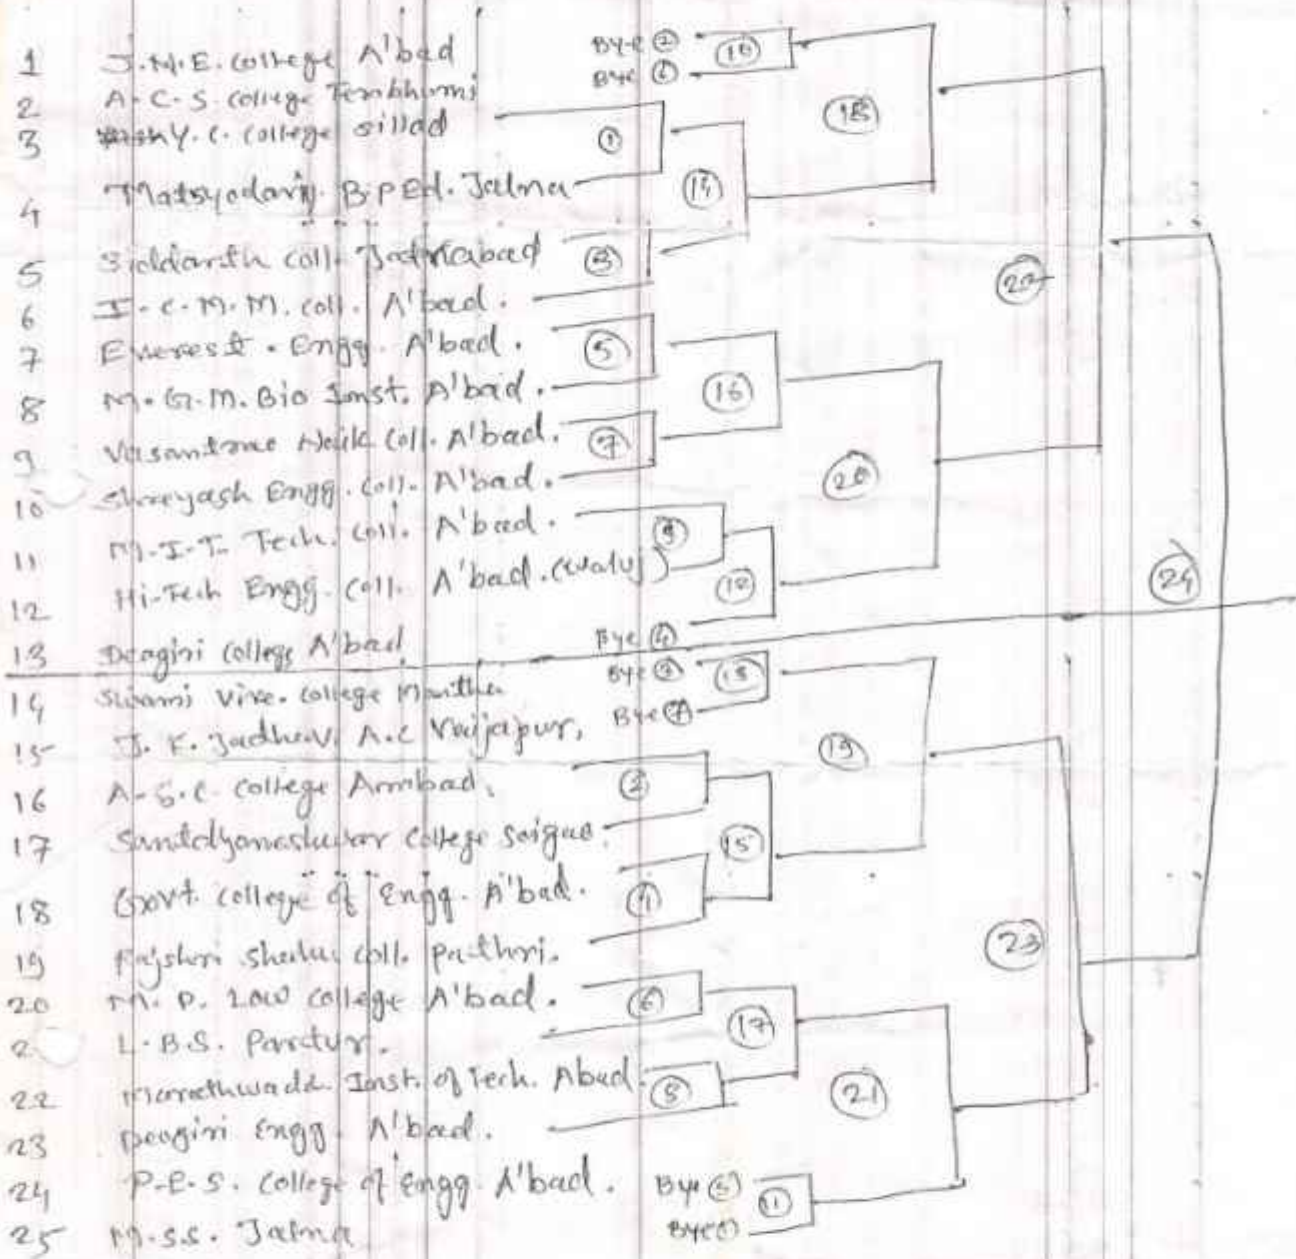 1 J.N.E. College A'bad Bye ② ⑩
2 A.C.S. College Tembhurni Bye ⑥ ⑱
3 Y.C. College Sillod ①
4 Matsyodari B.P.Ed. Jalna ⑭
5 Siddarth coll. Jafrabad ③
6 I.C.M.M. coll. A'bad. ㉒
7 Everest. Engg. A'bad. ⑤
8 M.G.M. Bio Inst. A'bad. ⑯
9 Vasantrao Naik Coll. A'bad. ⑦
10 Shreyash Engg. Coll. A'bad. ⑳
11 M.I.T. Tech. Coll. A'bad. ⑨
12 Hi-Tech Engg. Coll. A'bad. (Waluj) ⑫ ㉔
13 Deogiri College A'bad Bye ④
14 Swami Vive. College Mantha Bye ③ ⑬
15 J.K. Jadhav. A.C Vaijapur, Bye ⑲
16 A.S.C. College Ambad. ②
17 Santdyaneshwar College Soigao. ⑮
18 Govt. College of Engg. A'bad. ④
19 Rajshri Shahu Coll. Pathri. ㉓
20 M.P. Law College A'bad. ⑥
2 L.B.S. Partur. ⑰
22 Marathwada. Inst. of Tech. Abad. ⑧ ㉑
23 Deogiri Engg. A'bad.
24 P.E.S. College of Engg. A'bad. Bye ⑤ ⑪
25 M.S.S. Jalna Bye ①